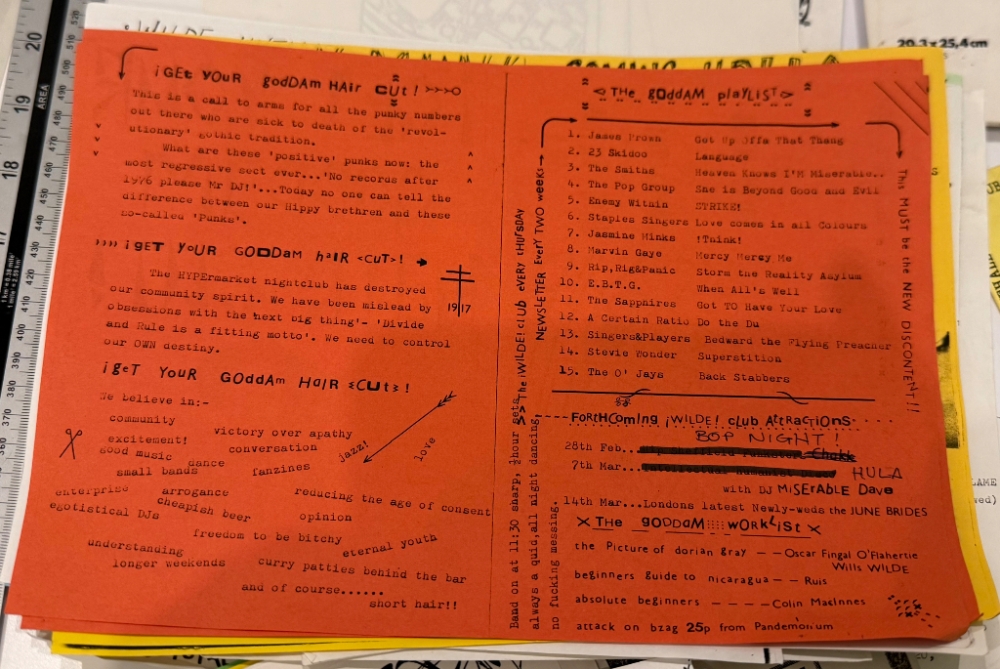 ¡GEt YOUR goDDAM HAIR CUt!
This is a call to arms for all the punky numbers
out there who are sick to death of the 'revol-
utionary' gothic tradition.
What are these 'positive' punks now: the
most regressive sect ever...'No records after
1976 please Mr DJ!'...Today no one can tell the
difference between our Hippy brethren and these
so-called 'Punks'.
¡GET YOUR GODDAM hAIR <CUT>!
The HYPErmarket nightclub has destroyed
our community spirit. We have been mislead by
obsessions with the 'next big thing'- 'Divide
and Rule is a fitting motto'. We need to control
our OWN destiny.
19 17
¡geT YOUR GOddAm HaIR <CUt>!
We believe in:-
community
victory over apathy
excitement!
conversation
good music
dance
jazz!
love
small bands
fanzines
enterprise
arrogance
reducing the age of consent
egotistical DJs
cheapish beer
opinion
freedom to be bitchy
understanding
eternal youth
longer weekends
curry patties behind the bar
and of course......
short hair!!
Band on at 11:30 sharp, ½hour sets
always a quid,all night dancing,
no fucking messing.
>> The ¡WILDE! club EVERY tHURSDAY
NEWSLETTER EVERY TWO weeks→
THE gODDAM playLIST
1. James Brown Get Up Offa That Thang
2. 23 Skidoo Language
3. The Smiths Heaven Knows I'M Miserable..
4. The Pop Group She is Beyond Good and Evil
5. Enemy Within STRIKE!
6. Staples Singers Love comes in all Colours
7. Jasmine Minks !Think!
8. Marvin Gaye Mercy Mercy Me
9. Rip,Rig&Panic Storm the Reality Asylum
10. E.B.T.G. When All's Well
11. The Sapphires Got TO Have Your Love
12. A Certain Ratio Do the Du
13. Singers&Players Bedward the Flying Preacher
14. Stevie Wonder Superstition
15. The O' Jays Back Stabbers
This MUST be the NEW DISCONTENT!!
FoRtHComIng ¡WILDE! club AttRActIOnS
BOP NIGHT!
28th Feb..
7th Mar...
HULA
with DJ MISERABLE Dave
14th Mar...Londons latest Newly-weds the JUNE BRIDES
X THE gODDAM WORKLISt X
the Picture of dorian gray — — Oscar Fingal O'Flahertie
Wills WILDE
beginners guide to nicaragua — — Ruis
absolute beginners — — — — Colin MacInnes
attack on bzag 25p from Pandemonium
20,3 x 25,4cm
AREA